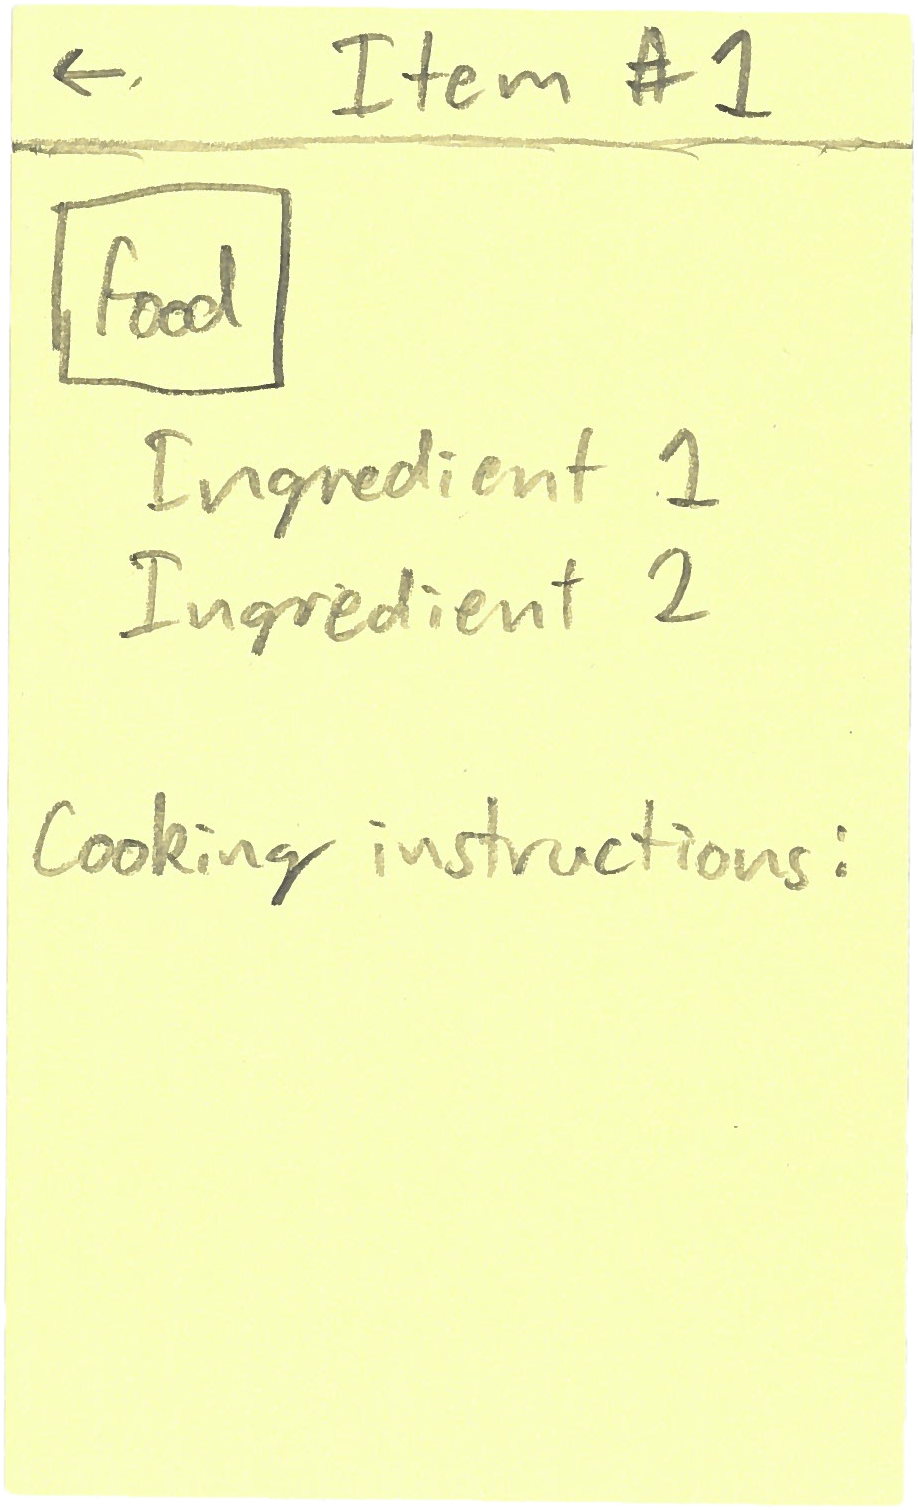 ← Item #1
food
Ingredient 1
Ingredient 2
Cooking instructions: